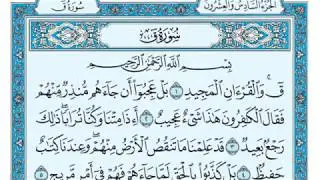 سُورَةُ قٓ
الجُزْءُ السَّادِسُ وَالعِشْرُونَ
سُورَةُ قٓ
بِسْمِ اللَّهِ الرَّحْمَٰنِ الرَّحِيمِ
قٓ ۚ وَالْقُرْءَانِ الْمَجِيدِ ١ بَلْ عَجِبُوٓا۟ أَن جَآءَهُم مُّنذِرٌ مِّنْهُمْ
فَقَالَ الْكَٰفِرُونَ هَٰذَا شَىْءٌ عَجِيبٌ ٢ أَءِذَا مِتْنَا وَكُنَّا تُرَابًا ۖ ذَٰلِكَ
رَجْعٌۢ بَعِيدٌ ٣ قَدْ عَلِمْنَا مَا تَنقُصُ الْأَرْضُ مِنْهُمْ ۖ وَعِندَنَا كِتَٰبٌ
حَفِيظٌۢ ٤ بَلْ كَذَّبُوا۟ بِالْحَقِّ لَمَّا جَآءَهُمْ فَهُمْ فِىٓ أَمْرٍ مَّرِيجٍ ٥